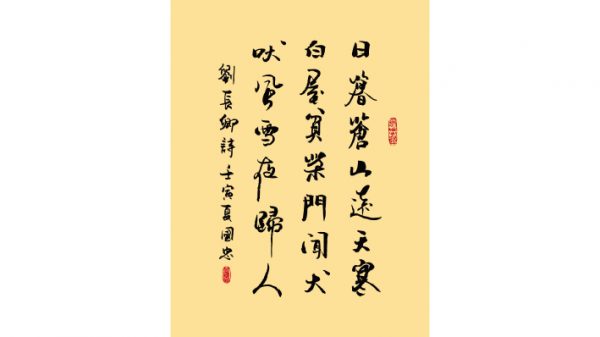 日暮蒼山遠天寒
白屋貧柴門聞犬
吠風雪夜歸人
劉長卿詩壬寅夏國忠